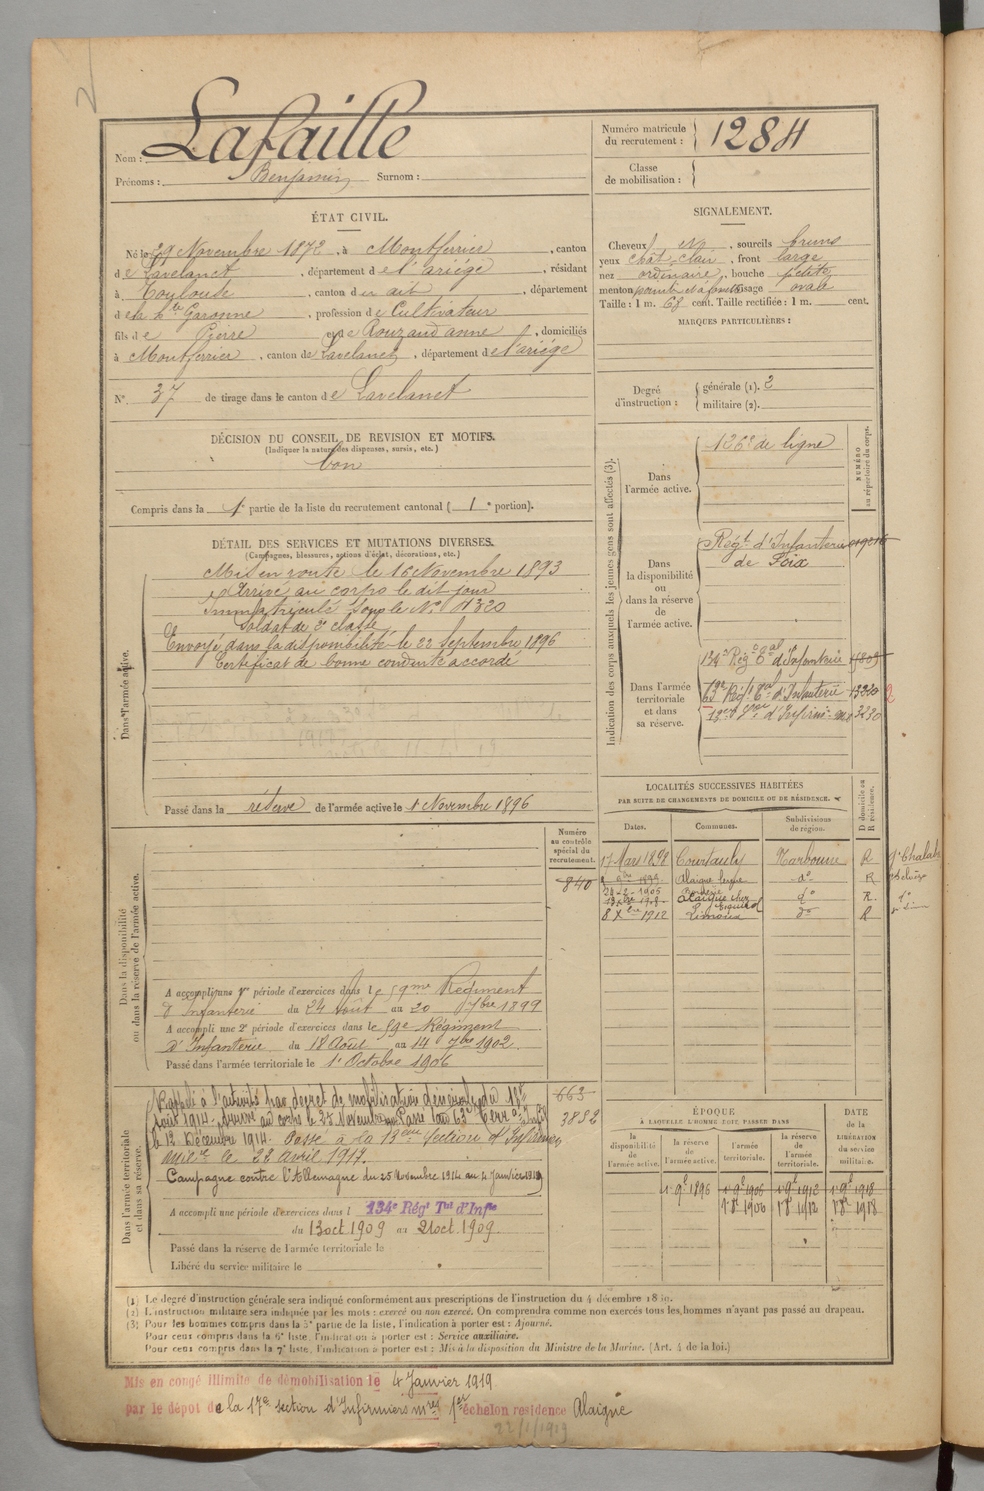 2
Nom : Lafaille
Prénoms : Benjamin Surnom :
Numéro matricule du recrutement : 1284
Classe de mobilisation :
ÉTAT CIVIL.
Né le 29 Novembre 1872, à Montferrier, canton
de Lavelanet, département de l'ariége, résidant
à Toulouse, canton du dit, département
de la hte Garonne, profession de Cultivateur
fils de Pierre et de Rouzaud anne, domiciliés
à Montferrier, canton de Lavelanet, département de l'ariége
N° 37 de tirage dans le canton de Lavelanet
DÉCISION DU CONSEIL DE REVISION ET MOTIFS.
(Indiquer la nature des dispenses, sursis, etc.)
bon
Compris dans la 1e partie de la liste du recrutement cantonal (1e portion).
SIGNALEMENT.
Cheveux, sourcils bruns
yeux chat. clair, front large
nez ordinaire, bouche petite
menton, visage ovale
Taille : 1 m. 68 cent. Taille rectifiée : 1 m. cent.
MARQUES PARTICULIÈRES :
Degré d'instruction : générale (1). 2
militaire (2).
DÉTAIL DES SERVICES ET MUTATIONS DIVERSES.
(Campagnes, blessures, actions d'éclat, décorations, etc.)
Dans l'armée active.
Mis en route le 16 Novembre 1893
Arrivé au corps le dit jour
Immatriculé sous le N°
Soldat de 2e classe
Envoyé dans la disponibilité le 22 Septembre 1896
Certificat de bonne conduite accordé
Passé dans la réserve de l'armée active le 1 Novembre 1896
Indication des corps auxquels les jeunes gens sont affectés (3).
NUMÉRO au répertoire du corps.
Dans l'armée active.
126e de ligne
Dans la disponibilité ou dans la réserve de l'armée active.
Régt d'Infanterie
de Foix
Dans l'armée territoriale et dans sa réserve.
134e Régt Tal d'Infanterie
Régt Tal d'Infanterie 13320 2
3230
LOCALITÉS SUCCESSIVES HABITÉES
PAR SUITE DE CHANGEMENTS DE DOMICILE OU DE RÉSIDENCE.
Dates. Communes. Subdivisions de région. D domicile ou R résidence.
17 Mars 1898 Courtauly Narbonne R
Alaigne do R
24-2-1905
Alaigne do R
8 Xbre 1912 Limoux do R
Dans la disponibilité ou dans la réserve de l'armée active.
Numéro au contrôle spécial du recrutement.
840
A accompli une 1re période d'exercices dans le 59me Régiment
d'Infanterie du 24 Août au 20 7bre 1899
A accompli une 2e période d'exercices dans le 59e Régiment
d'Infanterie du 18 Août au 14 7bre 1902.
Passé dans l'armée territoriale le 1er Octobre 1906
Dans l'armée territoriale et dans sa réserve.
663
3882
Rappelé à l'activité par décret de mobilisation générale du 1er
Août 1914. Arrivé au corps le 25 Novembre. Passé au 63e Terral Infie
le 12 Décembre 1914. Passé à la 13eme Section d'Infirmiers
milres le 22 avril 1917.
Campagne contre l'Allemagne du 25 Novembre 1914 au 4 Janvier 1919
A accompli une période d'exercices dans l 134e Régt Tal d'Infie
du 13 oct. 1909 au 21 oct. 1909.
Passé dans la réserve de l'armée territoriale le
Libéré du service militaire le
ÉPOQUE
A LAQUELLE L'HOMME DOIT PASSER DANS
DATE de la LIBÉRATION du service militaire.
la disponibilité de l'armée active. la réserve de l'armée active. l'armée territoriale. la réserve de l'armée territoriale.
1er 9bre 1896 1er 9bre 1906 1er 9bre 1912 1er 9bre 1918
1er 8bre 1906 1er 8bre 1912 1er 8bre 1918
(1) Le degré d'instruction générale sera indiqué conformément aux prescriptions de l'instruction du 4 décembre 1889.
(2) L'instruction militaire sera indiquée par les mots : exercé ou non exercé. On comprendra comme non exercés tous les hommes n'ayant pas passé au drapeau.
(3) Pour les hommes compris dans la 5e partie de la liste, l'indication à porter est : Ajourné.
Pour ceux compris dans la 6e liste, l'indication à porter est : Service auxiliaire.
Pour ceux compris dans la 7e liste, l'indication à porter est : Mis à la disposition du Ministre de la Marine. (Art. 4 de la loi.)
Mis en congé illimité de démobilisation le 4 Janvier 1919
par le dépôt de la 17e section d'Infirmiers mres 1er échelon residence Alaigne
22/1/1919